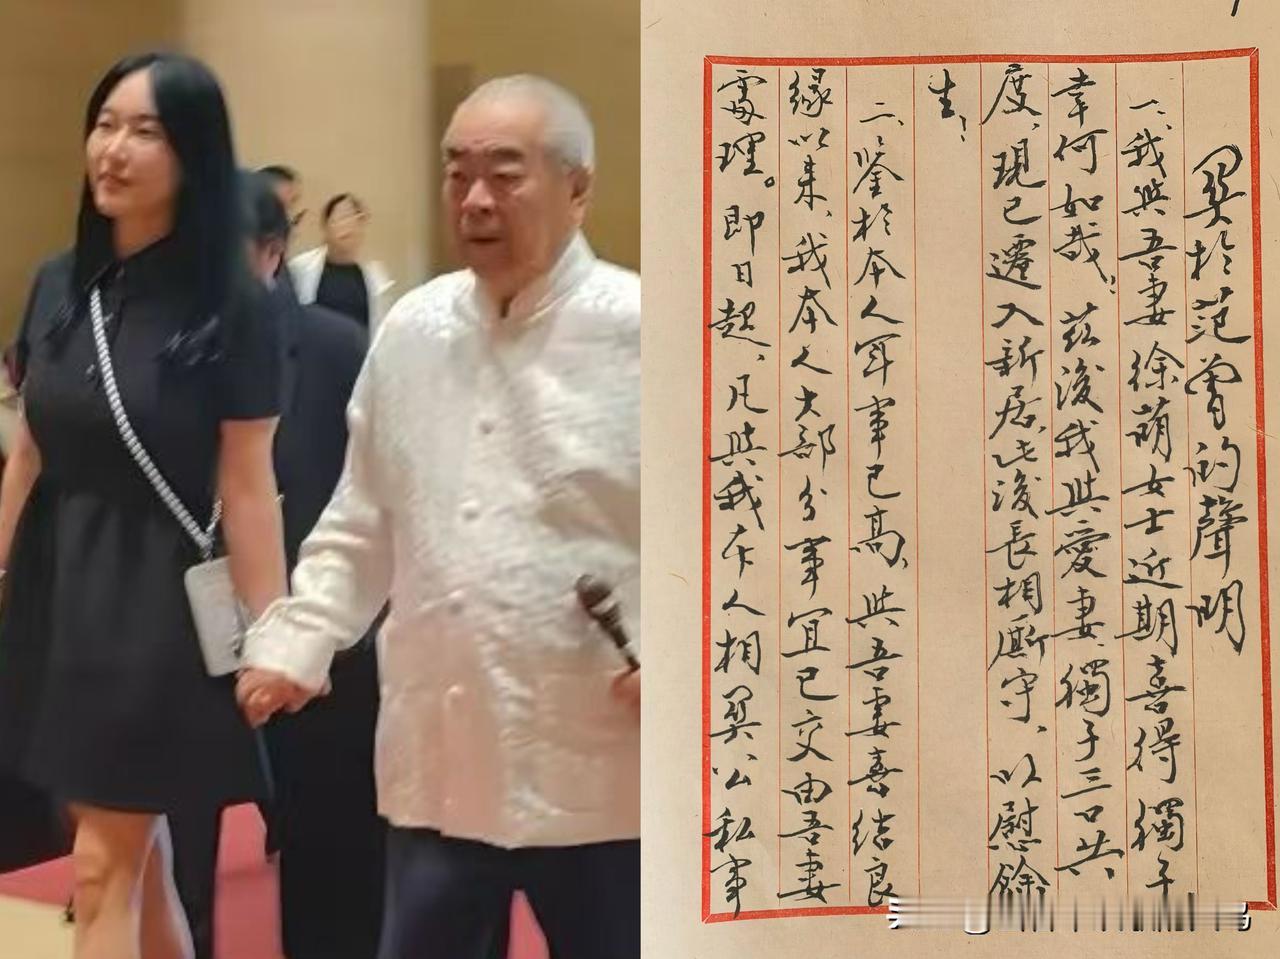 関於范曾的聲明
一、我與吾妻徐萌女士近期喜得獨子
幸何如哉！茲後我與愛妻、獨子三口共
度、現已遷入新居，此後長相厮守、以慰餘
生！
二、鑒於本人年事已高、與吾妻喜結良
緣以来、我本人大部分事宜已交由吾妻
處理。即日起、凡與我本人相関公私事